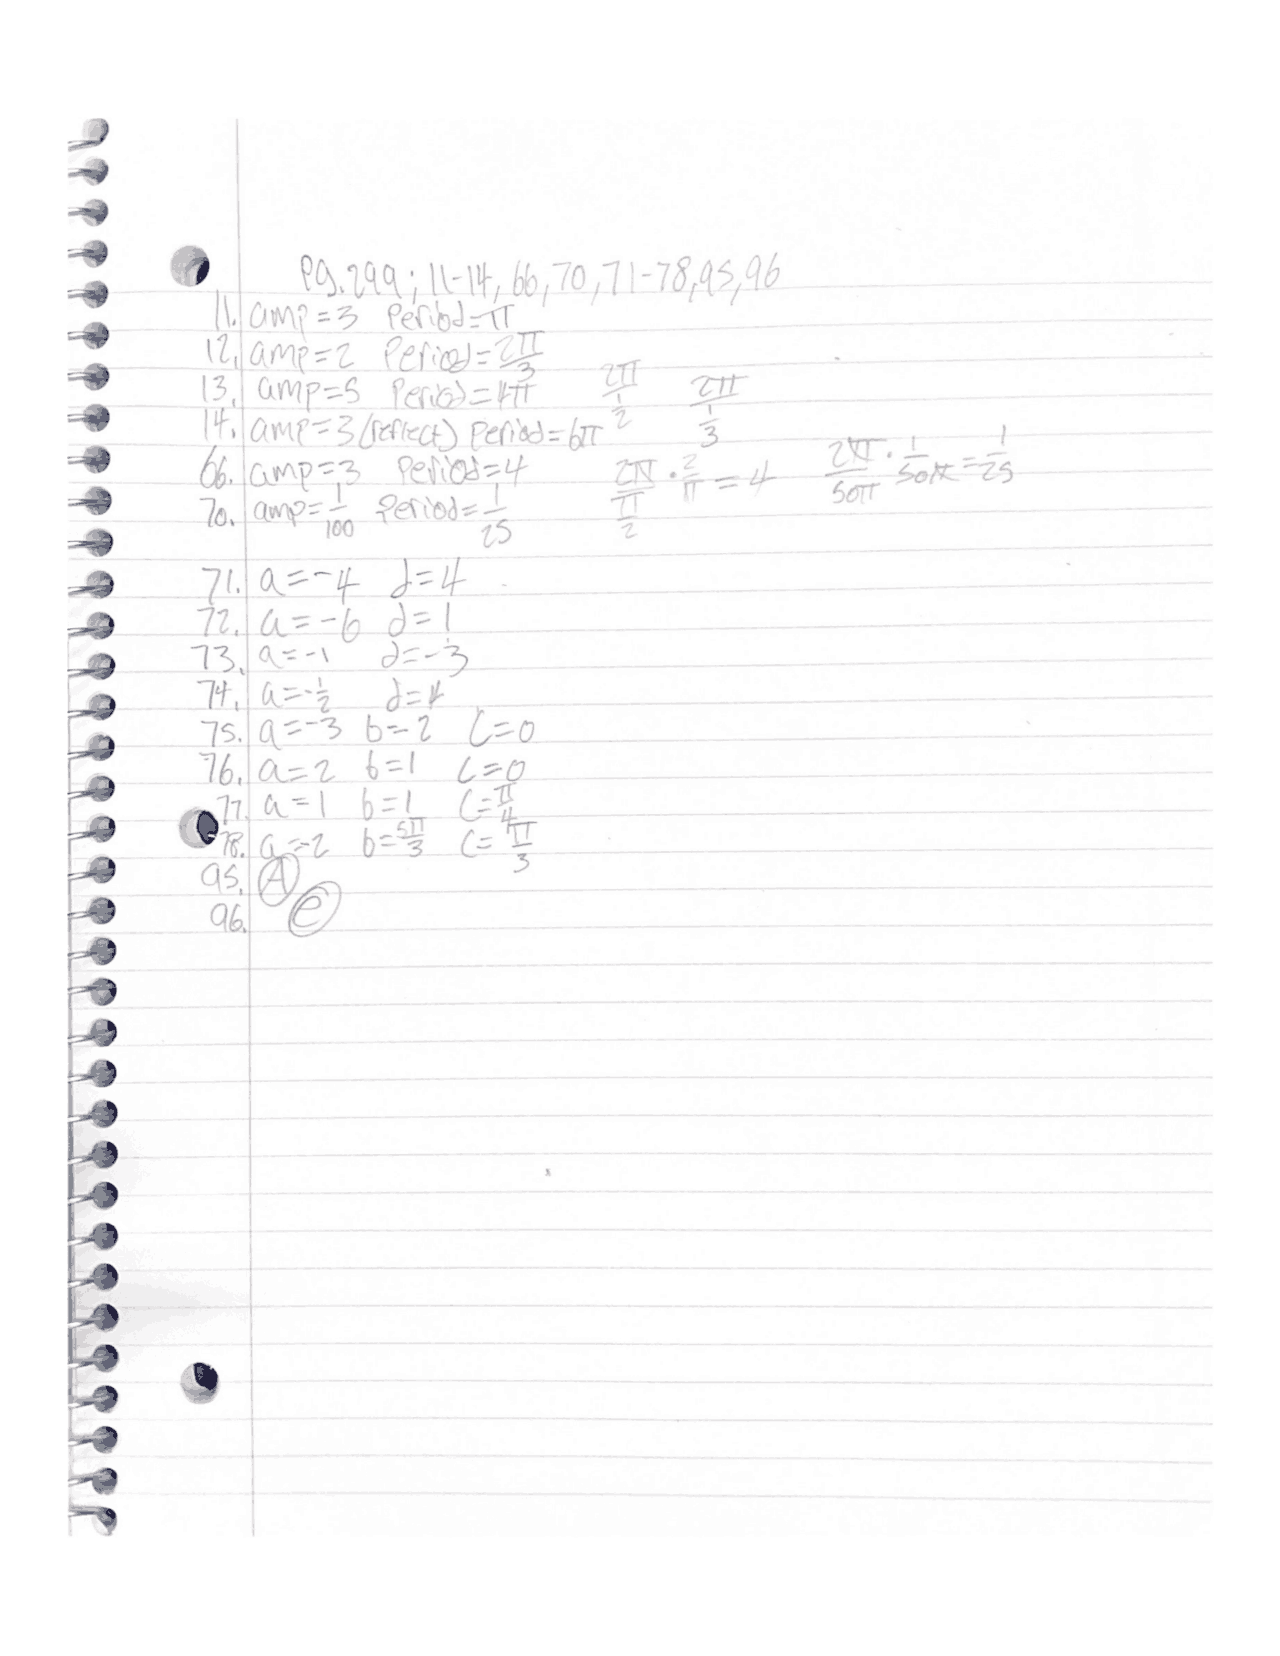 Pg. 299; 11-14, 66, 70, 71-78, 95, 96
11. amp=3 Period=π
12. amp=2 Period=2π/3
13. amp=5 Period=4π 2π/(1/2) 2π/(1/3)
14. amp=3 (reflect) Period=6π
66. amp=3 Period=4 2π/(π/2) · 2/π = 4 2π/50π · 1/50π = 1/25
70. amp=1/100 Period=1/25
71. a=-4 d=4
72. a=-6 d=1
73. a=-1 d=-3
74. a=-1/2 d=4
75. a=-3 b=-2 c=0
76. a=2 b=1 c=0
77. a=1 b=1 c=π/4
78. a=-2 b=5π/3 c=π/3
95. A
96. C